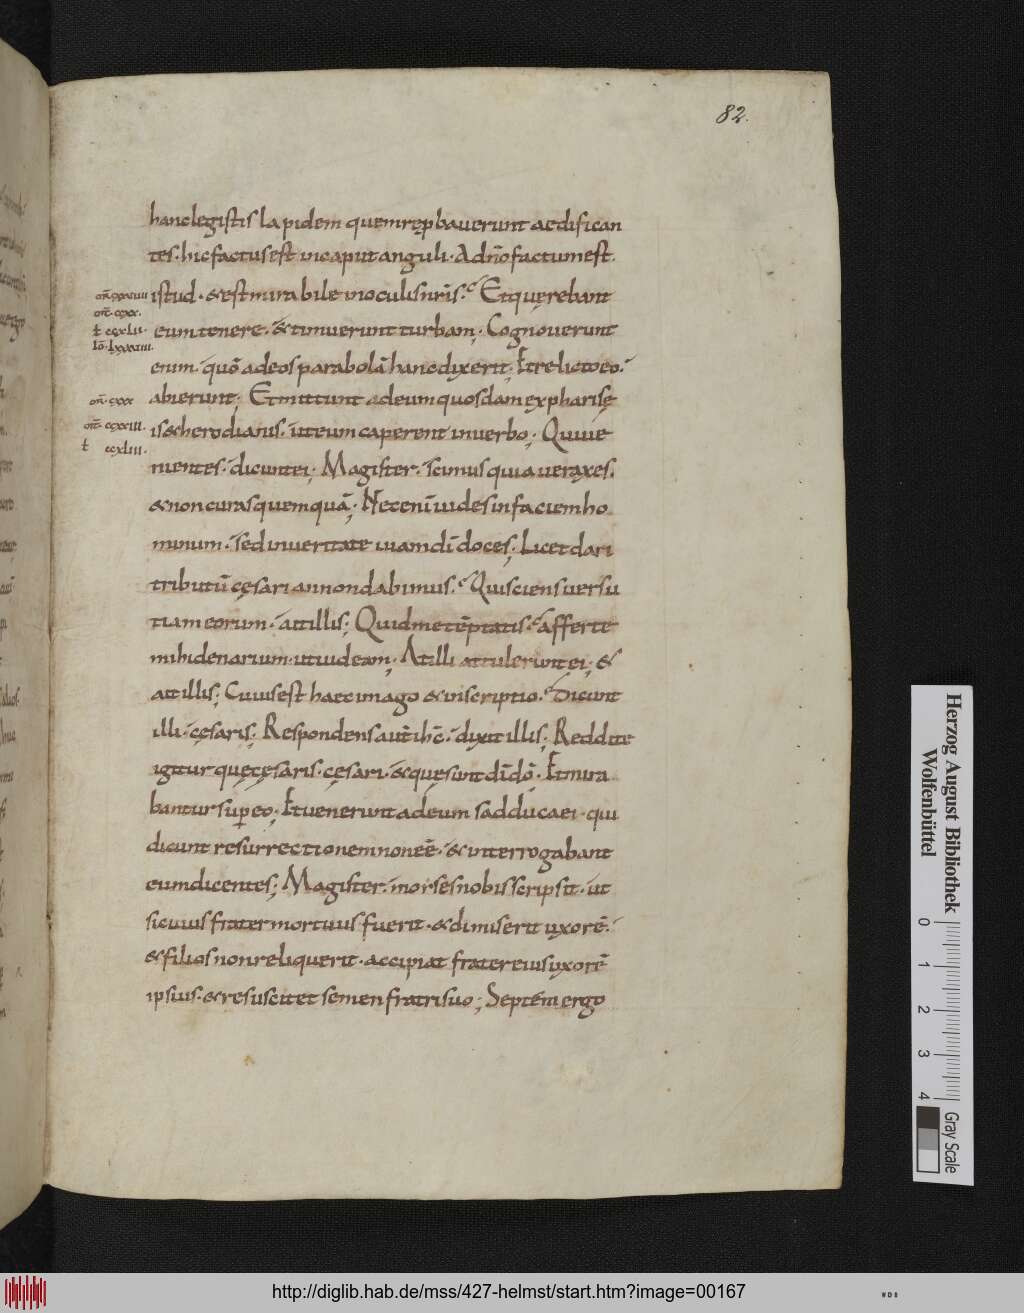 82.
hanc legistis lapidem quem rep̱bauerunt aedifican
tes· hic factus est in caput anguli· A dn̄o factum est
istud· & est mirabile in oculis nr̄is· Et quęrebant
eum tenere· & timuerunt turbam; Cognouerunt
enim· quō ad eos parabolā hanc dixerit; Et relicto eo·
abierunt; Et mittunt ad eum quosdam ex pharisę
is & herodianis· ut eum caperent in uerbo; Qui ue
nientes· dicunt ei; Magister· scimus quia uerax es·
& non curas quemquā; Nec enī uides in faciem ho
minum· sed in ueritate uiam dī doces; Licet dari
tributū cęsari an non dabimus· Qui sciens uersu
tiam eorum· ait illis; Quid me tēptatis· afferte
mihi denarium· ut uideam; At illi attulerunt ei; &
ait illis; Cuius est haec imago & inscriptio· Dicunt
illi· cęsaris; Respondens aut̄ ih̄c̄· dixit illis; Reddite
igitur quę cęsaris· cęsari· & quę sunt dī dō; Et mira
bantur sup̱ eo; Et uenerunt ad eum sadducaei· qui
dicunt resurrectionem non eē· & interrogabant
eum dicentes; Magister· moyses nobis scripsit· ut
si cuius frater mortuus fuerit· & dimiserit uxorē·
& filios non reliquerit· accipiat frater eius uxorē
ipsius· & resuscitet semen fratri suo; Septem ergo
Herzog August Bibliothek
Wolfenbüttel
0 1 2 3 4
Gray Scale
http://diglib.hab.de/mss/427-helmst/start.htm?image=00167